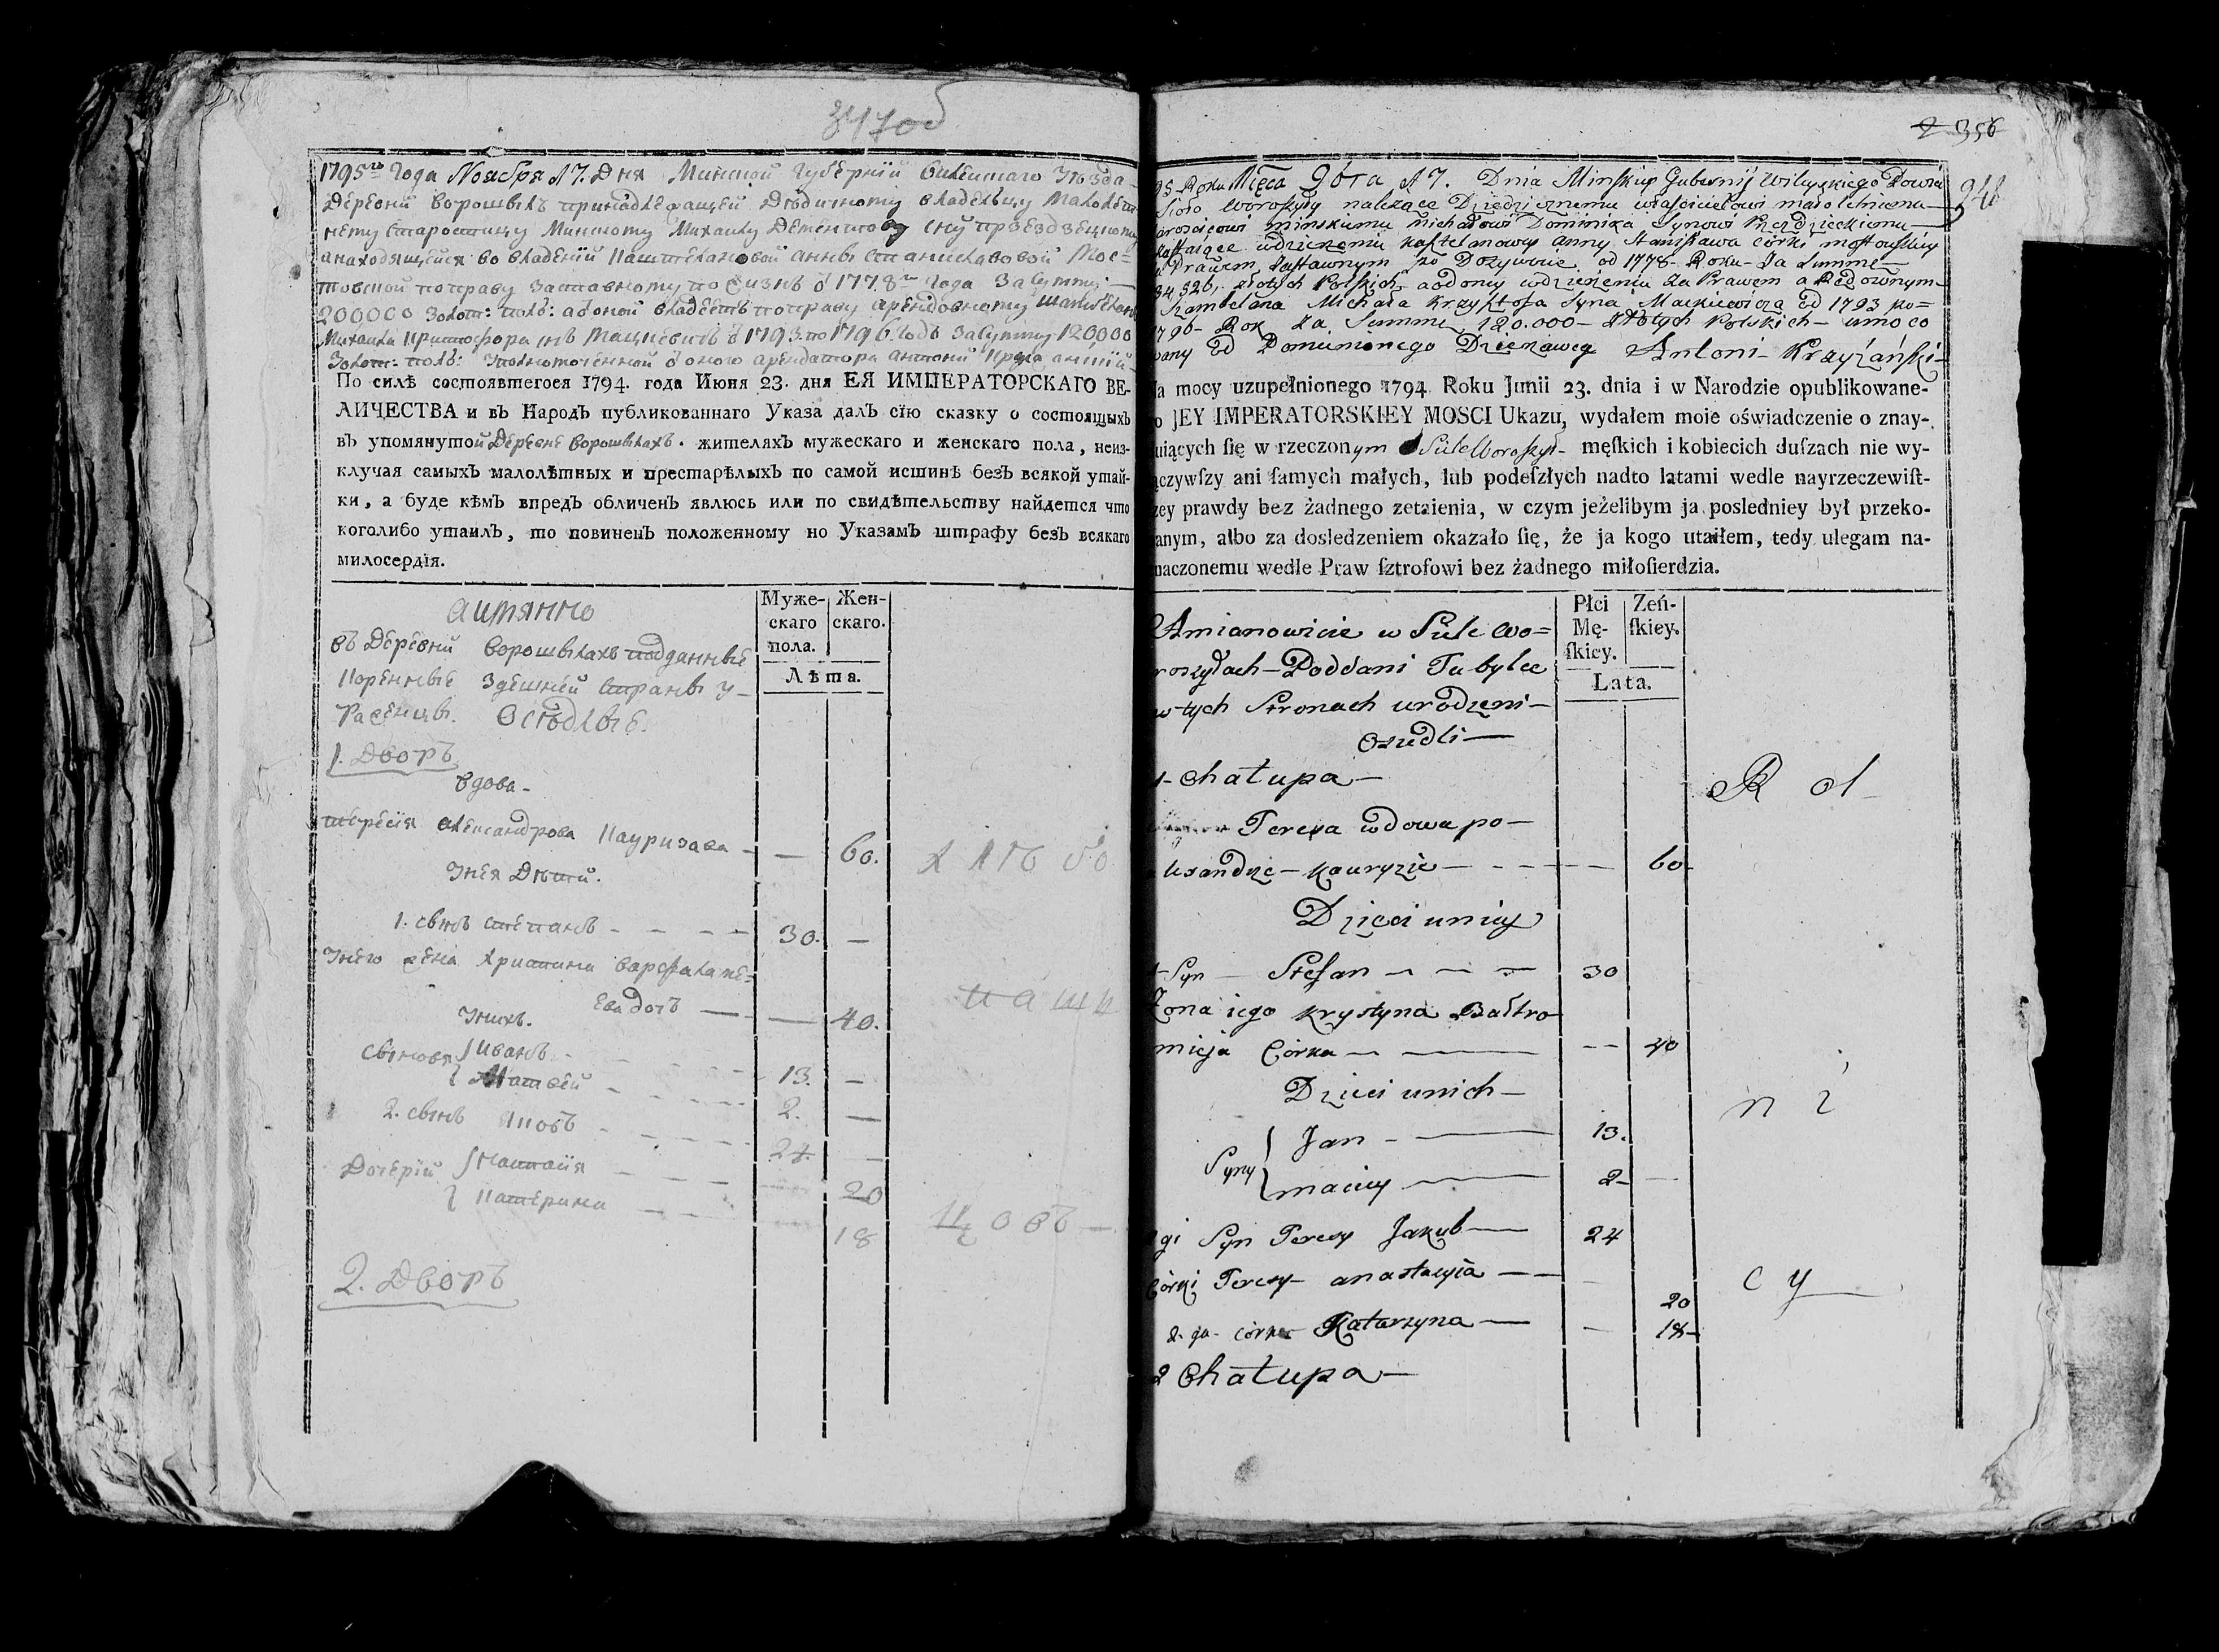 347 об
1795го Года Ноября 17. Дня Минской Губернїй Вилейскаго Уѣзда
Деревни Ворошылъ принадлежащей Дѣдичному владельцу Малолѣт-
нему Старостицу Минскому Михаилу
а находящейся во владенїй Каштеляновой Анны Станиславовой Мос=
товской по праву заставному по 1778го Года За Сумму
200000 Золот: поль: а оной владеетъ по праву арендовному
Михаила Криштофора 1793. по 1796. Годъ За Сумму 120,000
Золот: поль: оного арендатора Антонїй
По силѣ состоявшегося 1794. года Июня 23. дня ЕЯ ИМПЕРАТОРСКАГО ВЕ-
ЛИЧЕСТВА и въ Народъ публикованнаго Указа далъ сїю сказку о состоящыхъ
въ упомянутой Деревне Ворошылахъ. жителяхъ мужескаго и женскаго пола, неиз-
ключая самыхъ малолѣтныхъ и престарѣлыхъ по самой истинѣ безъ всякой утай-
ки, а буде кѣмъ впредъ обличенъ явлюсь или по свидѣтельству найдется что
коголибо утаилъ, то повиненъ положенному по Указамъ штрафу безъ всякаго
милосердїя.
а имянно
въ Деревни Ворошылахъ подданные
Коренные Здешней Страны у-
роженцы. Оседлые.
Муже-
скаго
пола.
Жен-
скаго.
Лѣта.
1. Дворъ
Вдова-
Тересїя Александрова Кауризова - — 60.
У нея Дѣти.
1. сынъ Степанъ - - - - 30. —
У него жена Христина Варфаламе=
ева дочь — — 40.
У нихъ.
Сыновья { Иванъ - - - 13. —
{ Матвей - - - 2. —
2. сынъ Якобъ - - - 24. —
Дочерїй { Настасїя - - - 20
{ Катерина - - - 18
2. Дворъ
2 356
348
95. Roku Mięca 9bra 17. Dnia Minskiey Gubernij Wileyskiego Powia
Sioło Woroszyły należące Dziedzicznemu właścicielowi małoletniemu
arościcowi Minskiemu Michałowi Dominika Synowi Przeździeckiemu
Kasztelanowey Anny Stanisława córki Mostowskiey
Prawem Zastawnym po Dożywocie od 1778- Roku- Za Summe
34,826, złotych Polskich a od oney w dzierżeniu Za Prawem aRędownym
Szambelana Michała Krzysztofa Syna Mackiewicza od 1793 po=
1796- Rok Za Summe 120.000- Złotych Polskich- umoco
wany od Pomienionego Dzierżawcy Antoni- Krzyżański-
Na mocy uzupełnionego 1794 Roku Junii 23. dnia i w Narodzie opublikowane-
o JEY IMPERATORSKIEY MOSCI Ukazu, wydałem moie oświadczenie o znay-
uiących ſię w rzeczonym Siele Woroszył- męſkich i kobiecich duſzach nie wy-
ączywſzy ani ſamych małych, lub podeſzłych nadto latami wedle nayrzeczewiſt-
zey prawdy bez żadnego zetaienia, w czym jeżelibym ja posledniey był przeko-
anym, albo za dosledzeniem okazało ſię, że ja kogo utaiłem, tedy ulegam na-
naczonemu wedle Praw ſztrofowi bez żadnego miłoſierdzia.
Amianowicie w Siele Wo=
roszyłach- Poddani Tubylce
w tych Stronach urodzeni-
Osiedli
Płci
Mę-
ſkiey.
Zeń-
ſkiey.
Lata.
1- Chałupa-
Teresa wdowa po-
lexandrze- Kauryzie - - - — 60
Dzieci u niey
1- Syn — Stefan — — 30
Zona iego Krystyna Bałtro
mieja Córka — — 40
Dzieci u nich-
Syny { Jan - — 13.
{ Maciey — 2-
gi Syn Teresy Jakub — 24
Córki Teresy- Anastazyia — 20
2. ga- córka Katarzyna — 18-
2 Chałupa-
R ol
n i
c y